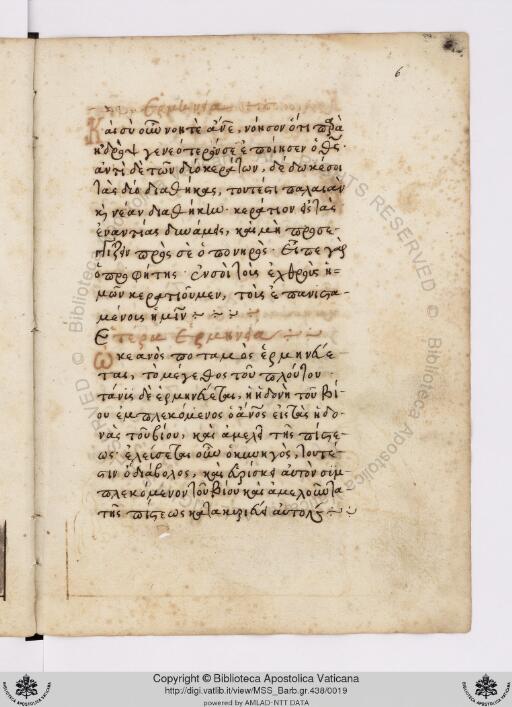 6
Ἑρμηνεία
Καὶ σὺ οὖν νοητὲ ἄνε, νόησον ὅτι
ὁ θς
ἀντὶ δὲ τῶν δύο κεράτων, δέδωκέ σοι
τὰς δύο διαθήκας, τουτέστι παλαιὰν
κ νέαν διαθήκην· κεράτιον εἰς τὰς
ἐναντίας δυνάμεις, καὶ μὴ
πρὸς σὲ ὁ πονηρός· εἶπε γὰρ
ὁ προφήτης ἐν σοὶ τοὺς ἐχθροὺς ἡ-
μῶν κερατιοῦμεν, τοῖς ἐπανιστα-
μένοις ἡμῖν
Ἑτέρα Ἑρμηνεία
Ὠκεανὸς ποταμὸς ἑρμηνεύε-
ται, τὸ μέγεθος τοῦ πλούτου·
τάνις δὲ ἑρμηνεύεται, ἡ ἡδονὴ τοῦ βί-
ου ἐμπλεκόμενος ὁ ἄνος εἰς τὰς ἡδο-
νὰς τοῦ βίου, καὶ ἀμελεῖ τῆς πίστε-
ως· ἐλεύσεται οὖν ὁ κυνηγὸς, τουτέ-
στιν ὁ διάβολος, καὶ εὑρίσκει αὐτὸν συμ-
πλεκόμενον τοῦ βίου καὶ ἀμελοῦντα
τῆς πίστεως
Copyright © Biblioteca Apostolica Vaticana
http://digi.vatlib.it/view/MSS_Barb.gr.438/0019
powered by AMLAD-NTT DATA